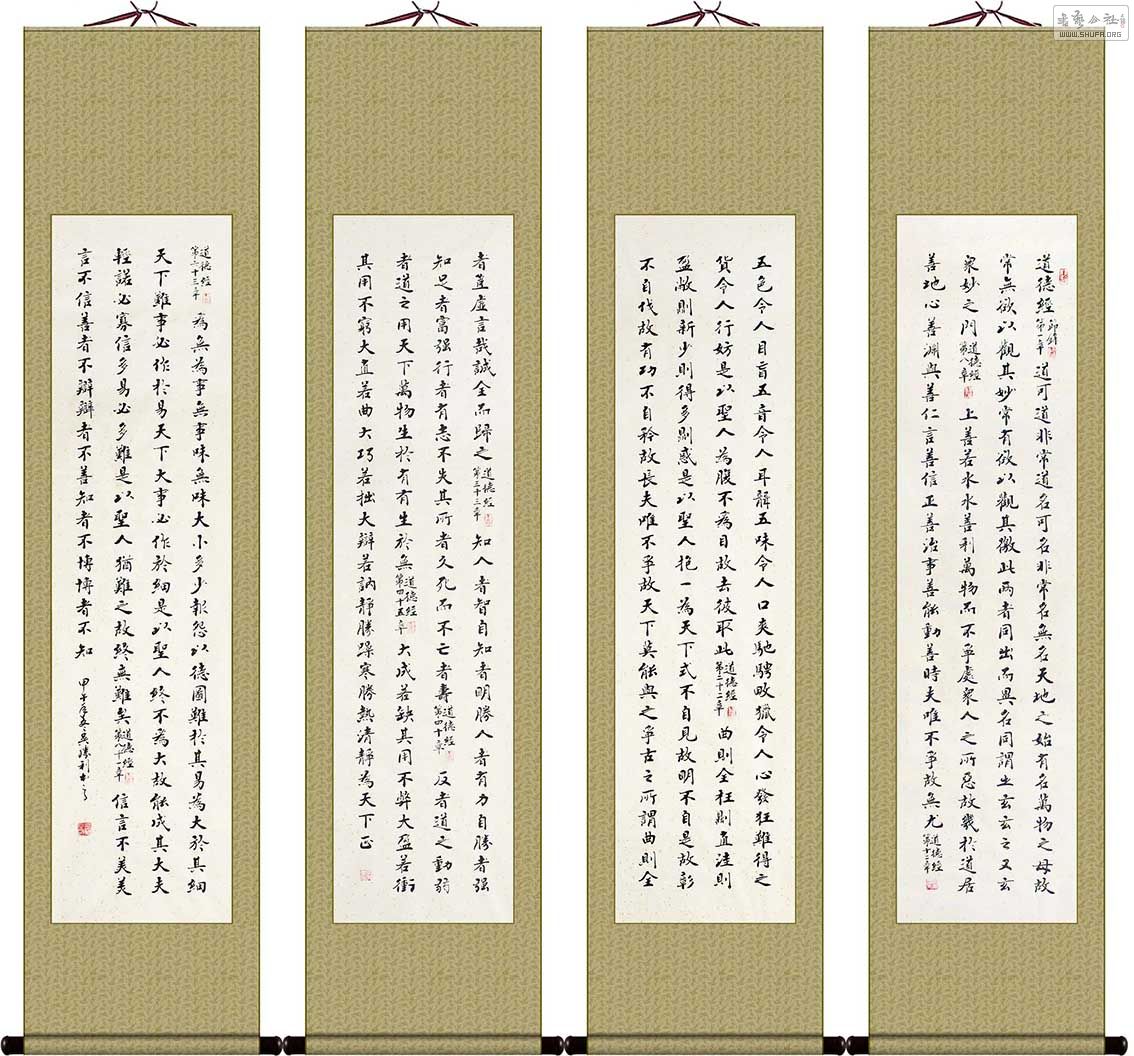 道德經 節錄 第一章 道可道非常道名可名非常名無名天地之始有名萬物之母故
常無欲以觀其妙常有欲以觀其徼此兩者同出而異名同謂之玄玄之又玄
衆妙之門 道德經 第八章 上善若水水善利萬物而不爭處衆人之所惡故幾於道居
善地心善淵與善仁言善信正善治事善能動善時夫唯不爭故無尤 道德經 第十二章
五色令人目盲五音令人耳聾五味令人口爽馳騁畋獵令人心發狂難得之
貨令人行妨是以聖人為腹不為目故去彼取此 道德經 第二十二章 曲則全枉則直洼則
盈敝則新少則得多則惑是以聖人抱一為天下式不自見故明不自是故彰
不自伐故有功不自矜故長夫唯不爭故天下莫能與之爭古之所謂曲則全
者豈虛言哉誠全而歸之 道德經 第三十三章 知人者智自知者明勝人者有力自勝者强
知足者富强行者有志不失其所者久死而不亡者壽 道德經 第四十章 反者道之動弱
者道之用天下萬物生於有有生於無 道德經 第四十五章 大成若缺其用不弊大盈若衝
其用不窮大直若曲大巧若拙大辯若訥靜勝躁寒勝熱清靜為天下正
道德經 第六十三章 為無為事無事味無味大小多少報怨以德圖難於其易為大於其細
天下難事必作於易天下大事必作於細是以聖人終不為大故能成其大夫
輕諾必寡信多易必多難是以聖人猶難之故終無難矣 道德經 第八十一章 信言不美美
言不信善者不辯辯者不善知者不博博者不知 甲午 吳勝利書
WWW.SHUFA.ORG